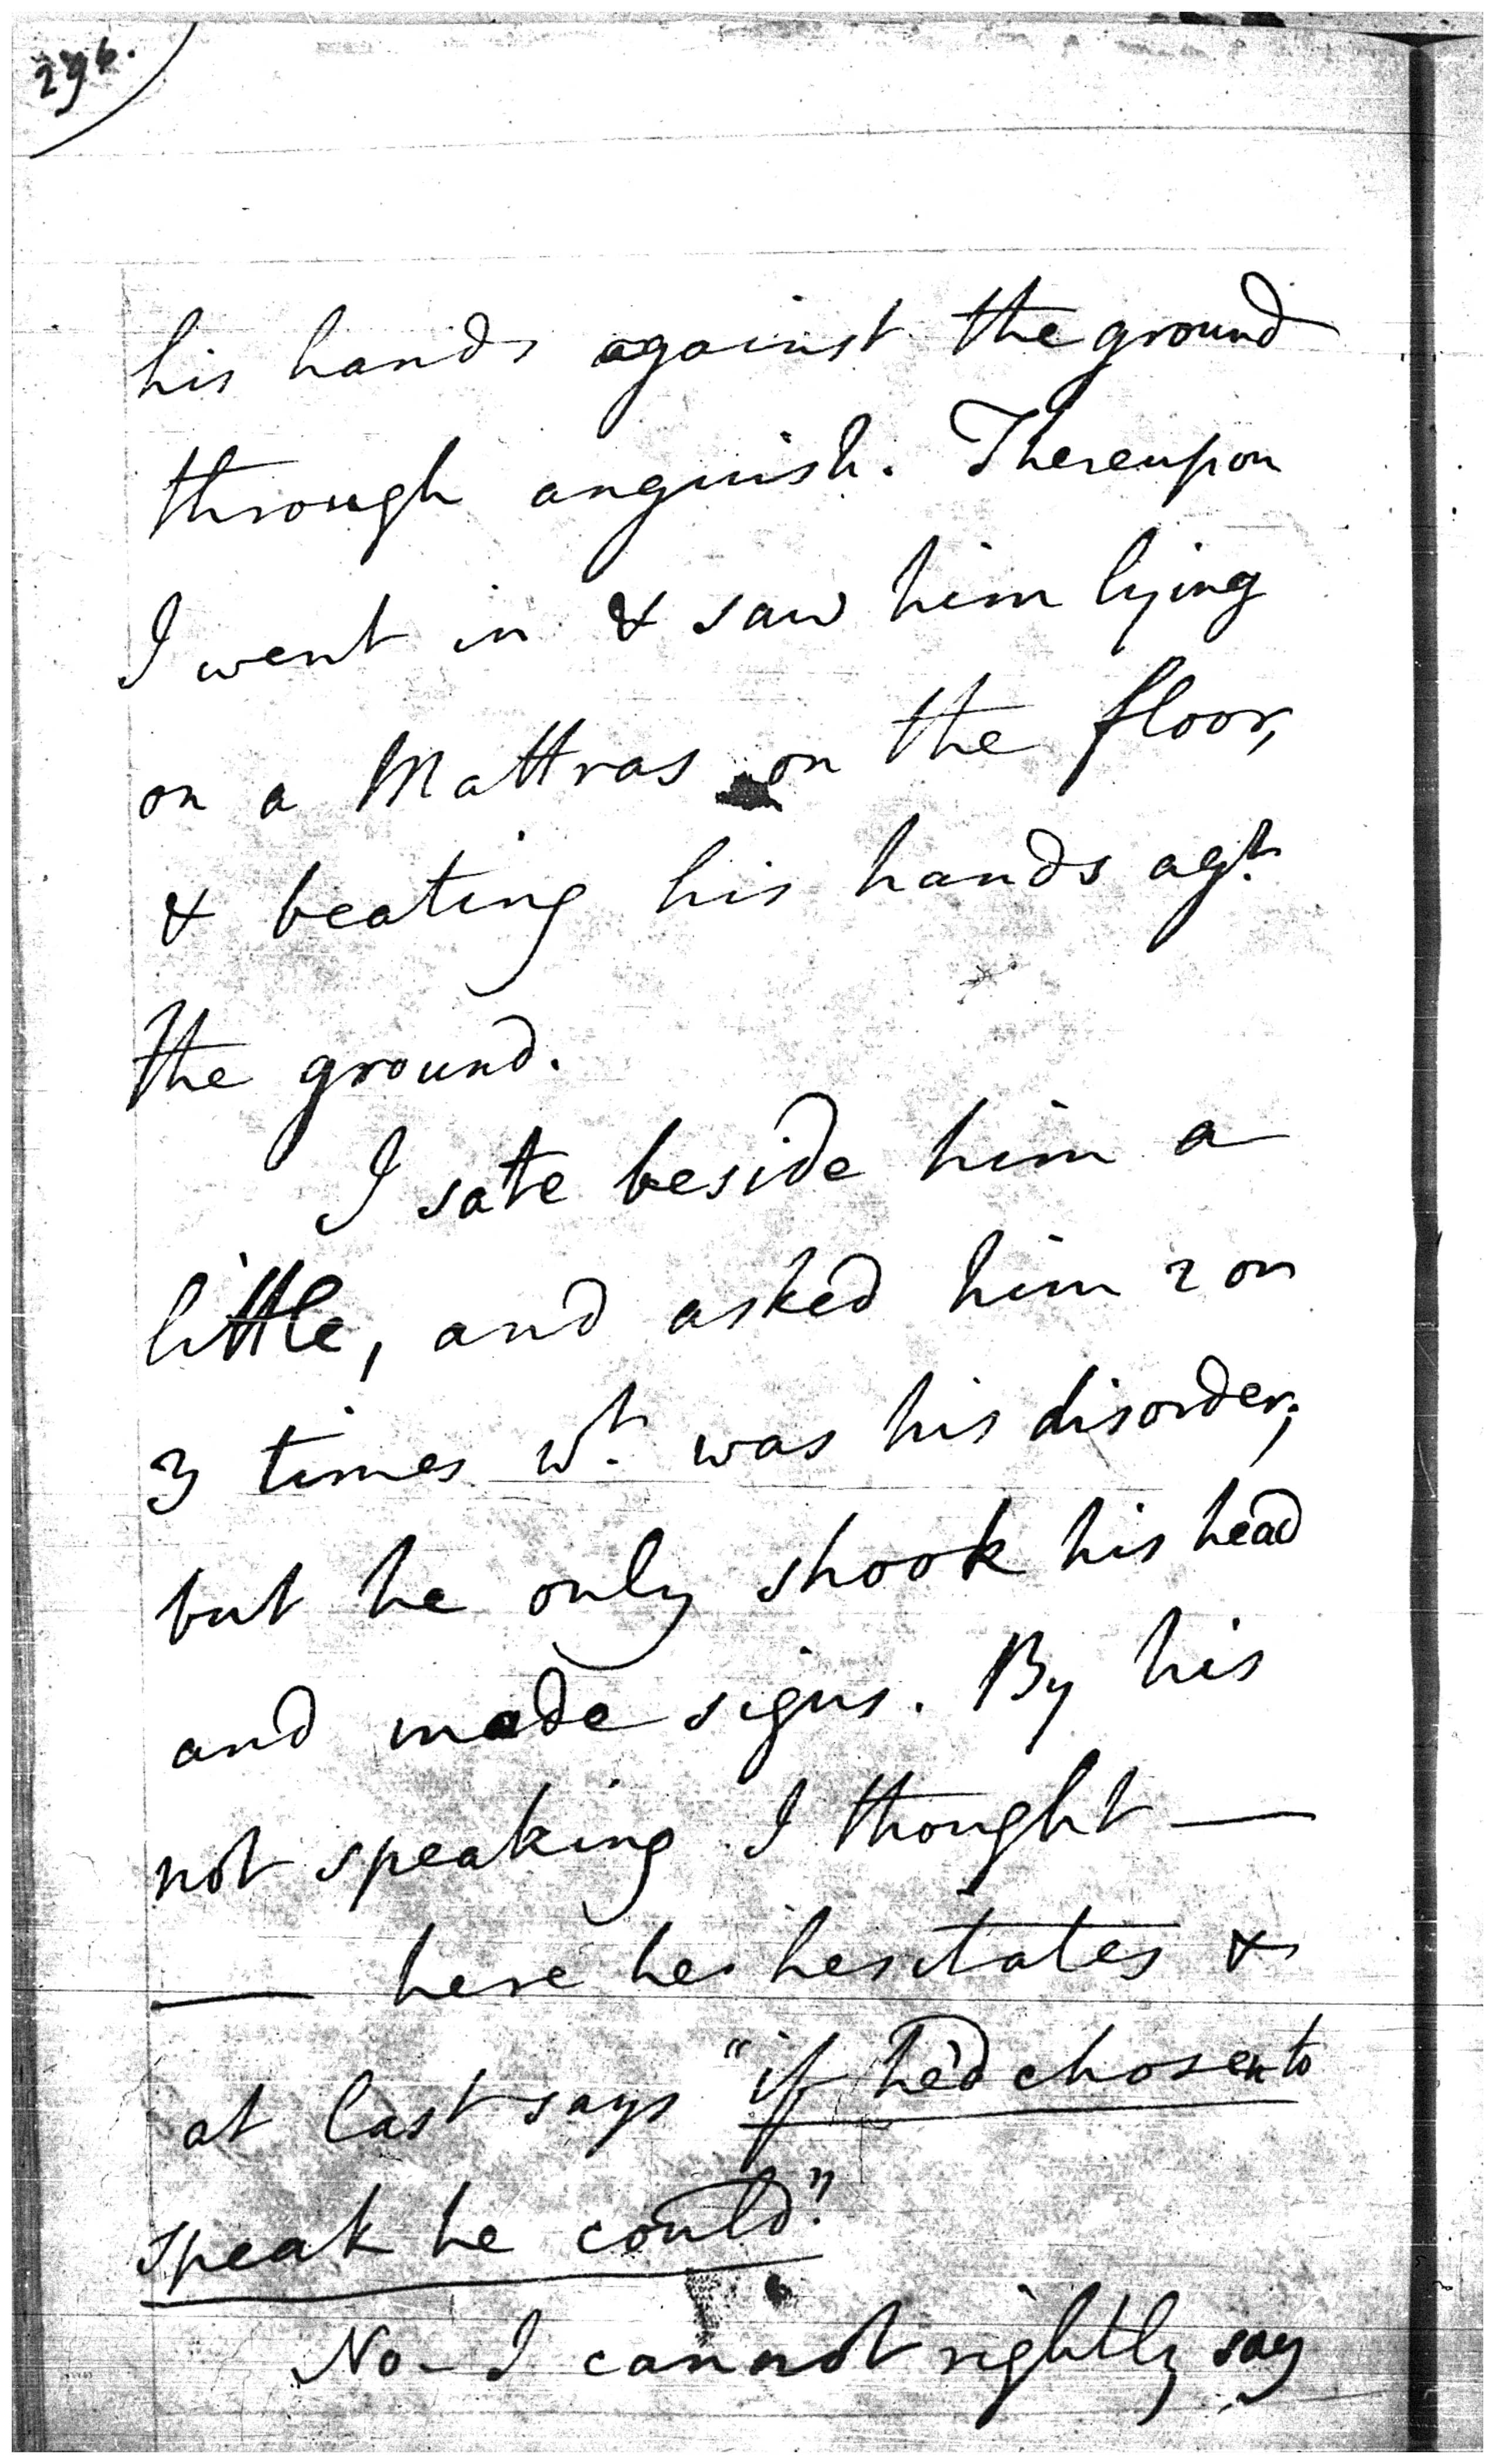 296.
his hands against the ground
through anguish. Thereupon
I went in & saw him lying
on a Mattras on the floor,
& beating his hands agt.
the ground.
I sate beside him a
little, and asked him 2 or
3 times wt. was his disorder;
but he only shook his head
and made signs. By his
not speaking I thought —
— here he hesitates &
at last says "if he'd chosen to
speak he could."
No - I cannot rightly say